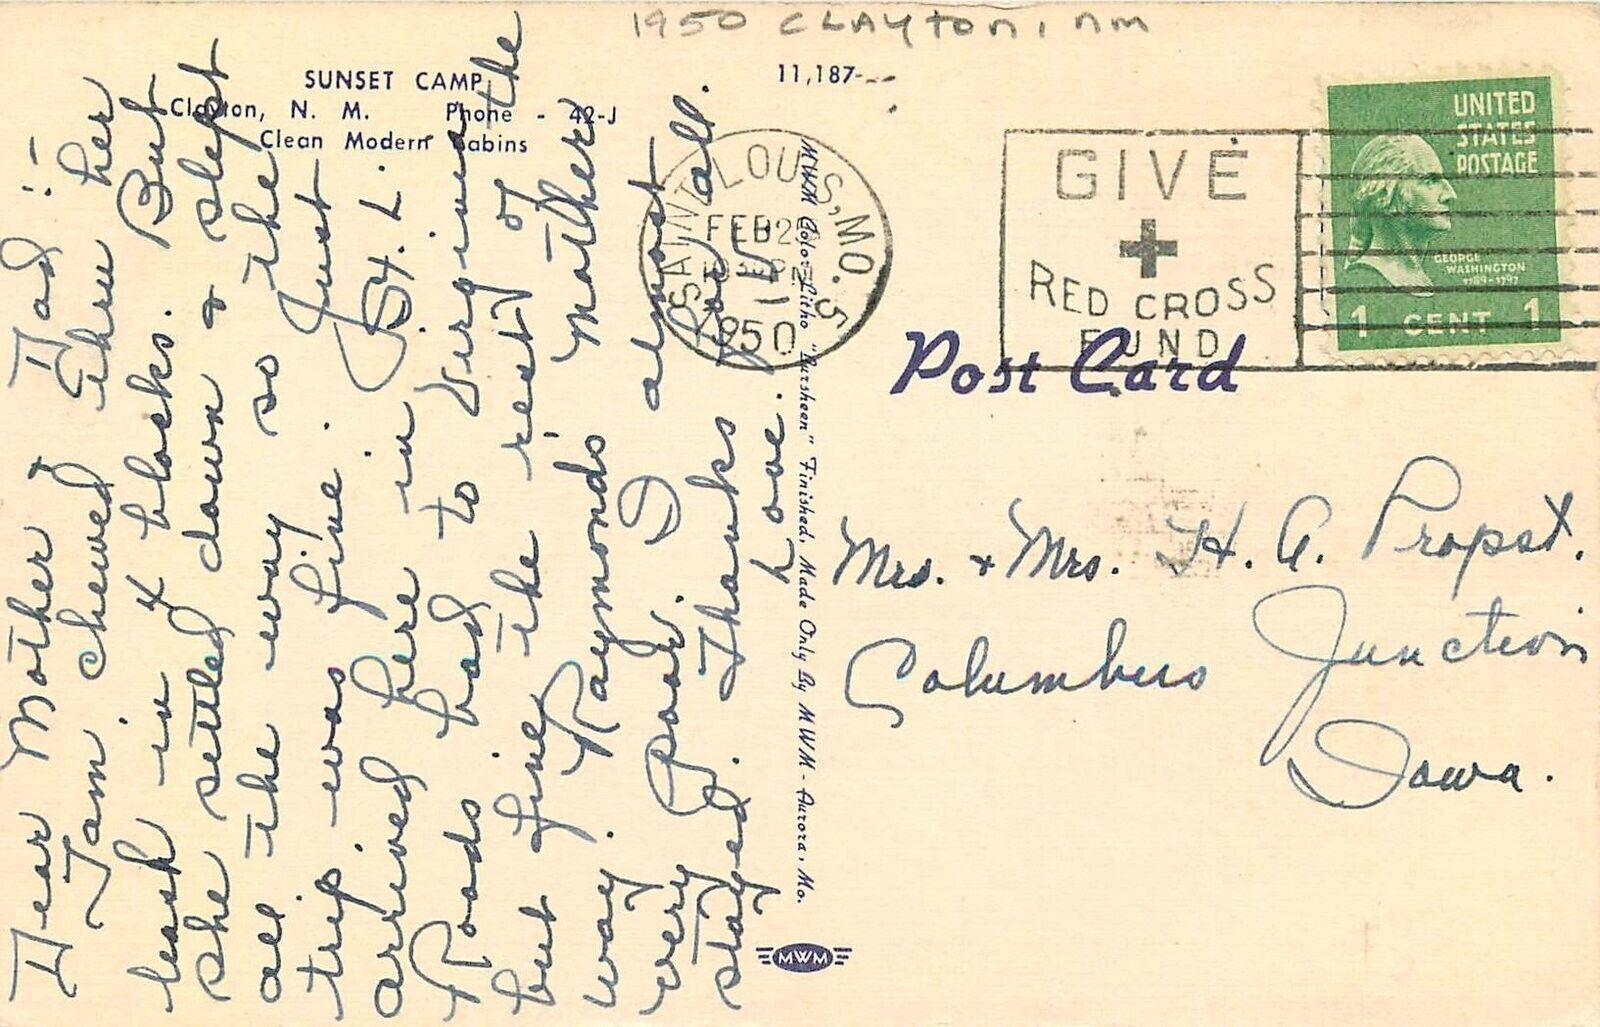 1950 CLAYTON, NM
SUNSET CAMP
Clayton, N. M. Phone - 42-J
Clean Modern Cabins
11,187-
Dear Mother & Dad :-
Tam chewed thru her
leash in 4 blocks. But
she settled down & slept
all the way so the
trip was fine. Just
arrived here in St. L.
Roads bad to Virginia
but fine the rest of the
way. Raymonds' Mother
very poor. I almost
stayed. Thanks for all.
Love.
SAINT LOUIS, MO. 5
FEB 2
PM
1950
GIVE
RED CROSS
FUND
UNITED
STATES
POSTAGE
GEORGE
WASHINGTON
1789-1797
1 CENT 1
Post Card
MWM Color-Litho "Mursheen" Finished, Made Only By MWM - Aurora, Mo.
MWM
Mrs. & Mrs. H. A. Propst.
Columbus Junction
Iowa.